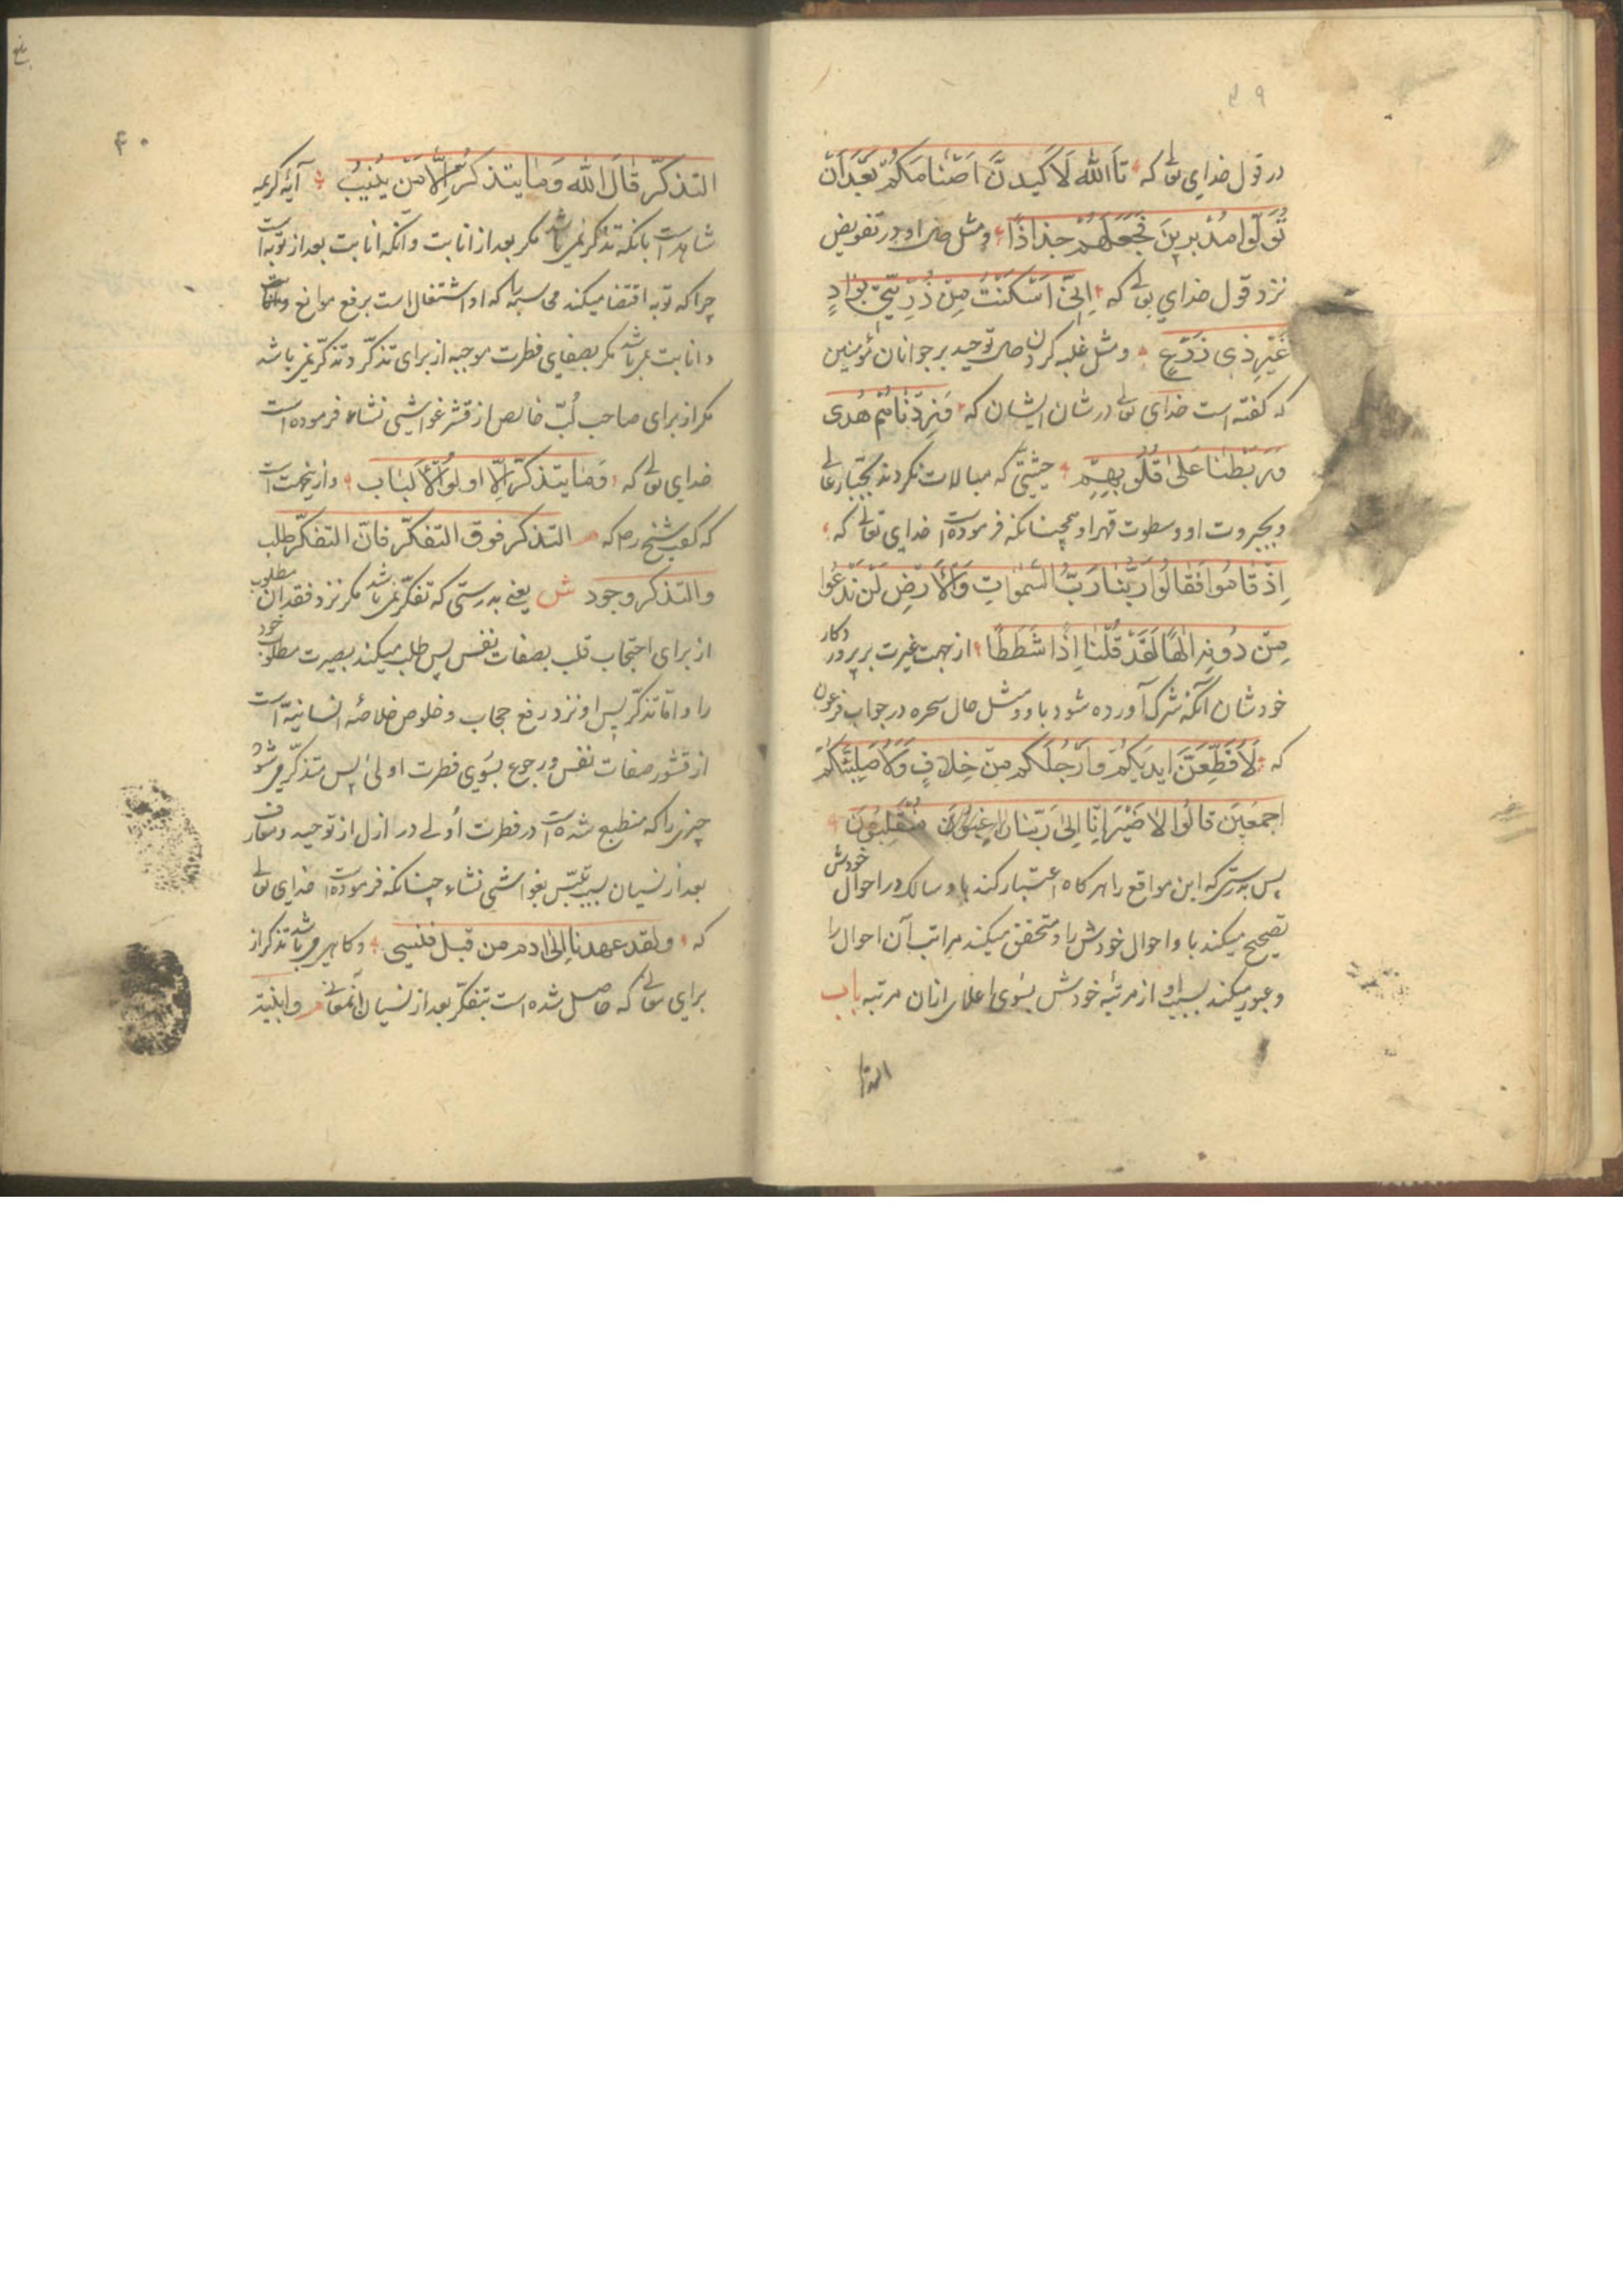 ۳۹
در قول خدای تعالی که تَاَللّٰهِ لَاَكِيدَنَّ اَصْنَامَكُمْ بَعْدَ اَنْ
تُوَلُّوا مُدْبِرِينَ فَجَعَلَهُمْ جُذَاذًا ومثل حال او در تفویض
نزد قول خدای تعالی که اِنِّی اَسْكَنْتُ مِنْ ذُرِّيَّتِی بِوَادٍ
غَيْرِ ذِی زَرْعٍ ومثل غلبه کردن حال توحید بر جوانان مؤمنین
که گفته است خدای تعالی در شان ایشان که وَزِدْنَاهُمْ هُدًی
وَرَبَطْنَا عَلٰی قُلُوبِهِمْ حیثیتی که مبالات نکردند بجبّار عالی
و بجبروت او و سطوت قهر او همچنانکه فرموده است خدای تعالی که
اِذْ قَامُوا فَقَالُوا رَبُّنَا رَبُّ السَّمٰوَاتِ وَالْاَرْضِ لَنْ نَدْعُوَا
مِنْ دُونِهِ اِلٰهًا لَقَدْ قُلْنَا اِذًا شَطَطًا از جهت غیرت بر پروردکار
خودشان آنکه شرک آورده شود باو ومثل حال سحره در جواب فرعون
که لَاُقَطِّعَنَّ اَيْدِيَكُمْ وَاَرْجُلَكُمْ مِنْ خِلَافٍ وَلَاُصَلِّبَنَّكُمْ
اَجْمَعِينَ قَالُوا لَا ضَيْرَ اِنَّا اِلٰی رَبِّنَا مُنْقَلِبُونَ
پس بدرستی که این مواقع را هرکاه اعتبار کند باو سالک در احوال خودش
تصحیح میکند باو احوال خودش را و متحقق میکند مراتب آن احوال را
و عبور میکند بسبب او از مرتبهٔ خودش بسوی اعلای ازان مرتبه باب
التذا
۴۰
التذكّر قَالَ اللهُ وَمَا يَتَذَكَّرُ اِلَّا مَنْ يُنِيبُ آیهٔ کریمه
شاهد است بانکه تذکر نمی باشد مکر بعد از انابت و آنکه انابت بعد از توبه است
چرا که توبه اقتضا میکند محاسبه را که او اشتغال است برفع موانع
و انابت نمی باشد مکر بصفای فطرت موجبه از برای تذکّر و تذکّر نمی باشد
مکر از برای صاحب لُبّ خالص از قشر غواشی نشاء فرموده است
خدای تعالی که وَمَا يَتَذَكَّرُ اِلَّا اُولُوا الْاَلْبَابِ و ازینجهت است
که گفت شیخ ره که م التذكر فوق التفكّر فانّ التفكّر طلب
والتذكر وجود ش یعنی بدرستی که تفکّر نمی باشد مکر نزد فقدان مطلوب
از برای احتجاب قلب بصفات نفس پس طلب میکند بصیرت مطلوب خود
را و امّا تذکّر پس او نزد رفع حجاب و خلوص خلاصهٔ انسانیة است
از قشور صفات نفس و رجوع بسوی فطرت اولی پس متذکّر می شود
چیزی را که منطبع شده است در فطرت اُولی در ازل از توحید و معارف
بعد از نسیان بسبب تلبّس بغواشی نشاء چنانکه فرموده است خدای تعالی
که ولقد عهدنا اِلٰی ادم من قبل فنسی و کاهی می باشد تذکر از
برای معانی که حاصل شده است بتفکّر بعد از نسیان آنمعانی م وابنیة